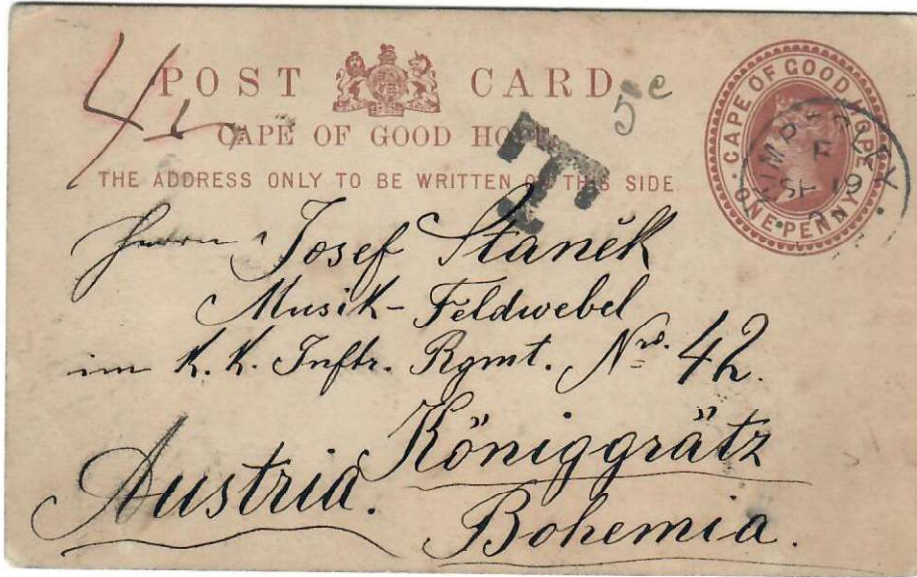 POST CARD
CAPE OF GOOD HOPE
THE ADDRESS ONLY TO BE WRITTEN ON THIS SIDE
CAPE OF GOOD HOPE
ONE PENNY
KIMBERLEY
SP 19
T
5c
Herrn Josef Staněk
Musik-Feldwebel
im K. K. Inftr. Rgmt. Nro. 42.
Königgrätz
Austria.
Bohemia.